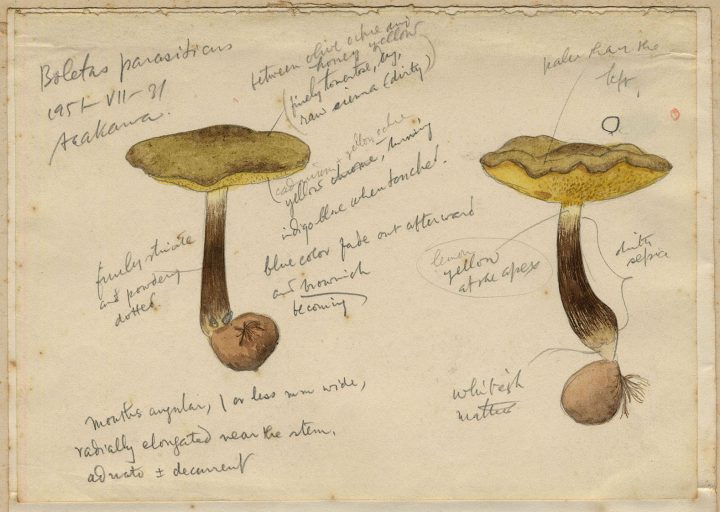 Boletus parasiticus
1951-VII-31
Asakawa.
between olive ochre and
honey yellow
(finely tomentose, dry,
raw sienna (dirty)
cadmium + yellow ochre,
yellow chrome, turning
indigo blue when touched.
blue color fade out afterward
and brownish
becoming
finely striate
and powdery
dotted
mouths angular, 1 or less mm wide,
radially elongated near the stem,
adnate ± decurrent
paler than the
left,
lemon
yellow
at the apex
dirty
sepia
whitish
matted